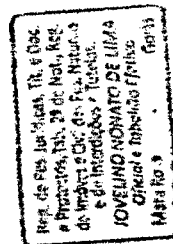 Reg. de Pes. Jurídicas, Tít. e Doc.
e Protestos, Tab. de Not., Reg.
de Imóveis e Civil das Pes. Naturais
e de Interdições e Tutelas.
JOVELINO NONATO DE LIMA
Oficial e Tabelião Efetivo
Mata Ro